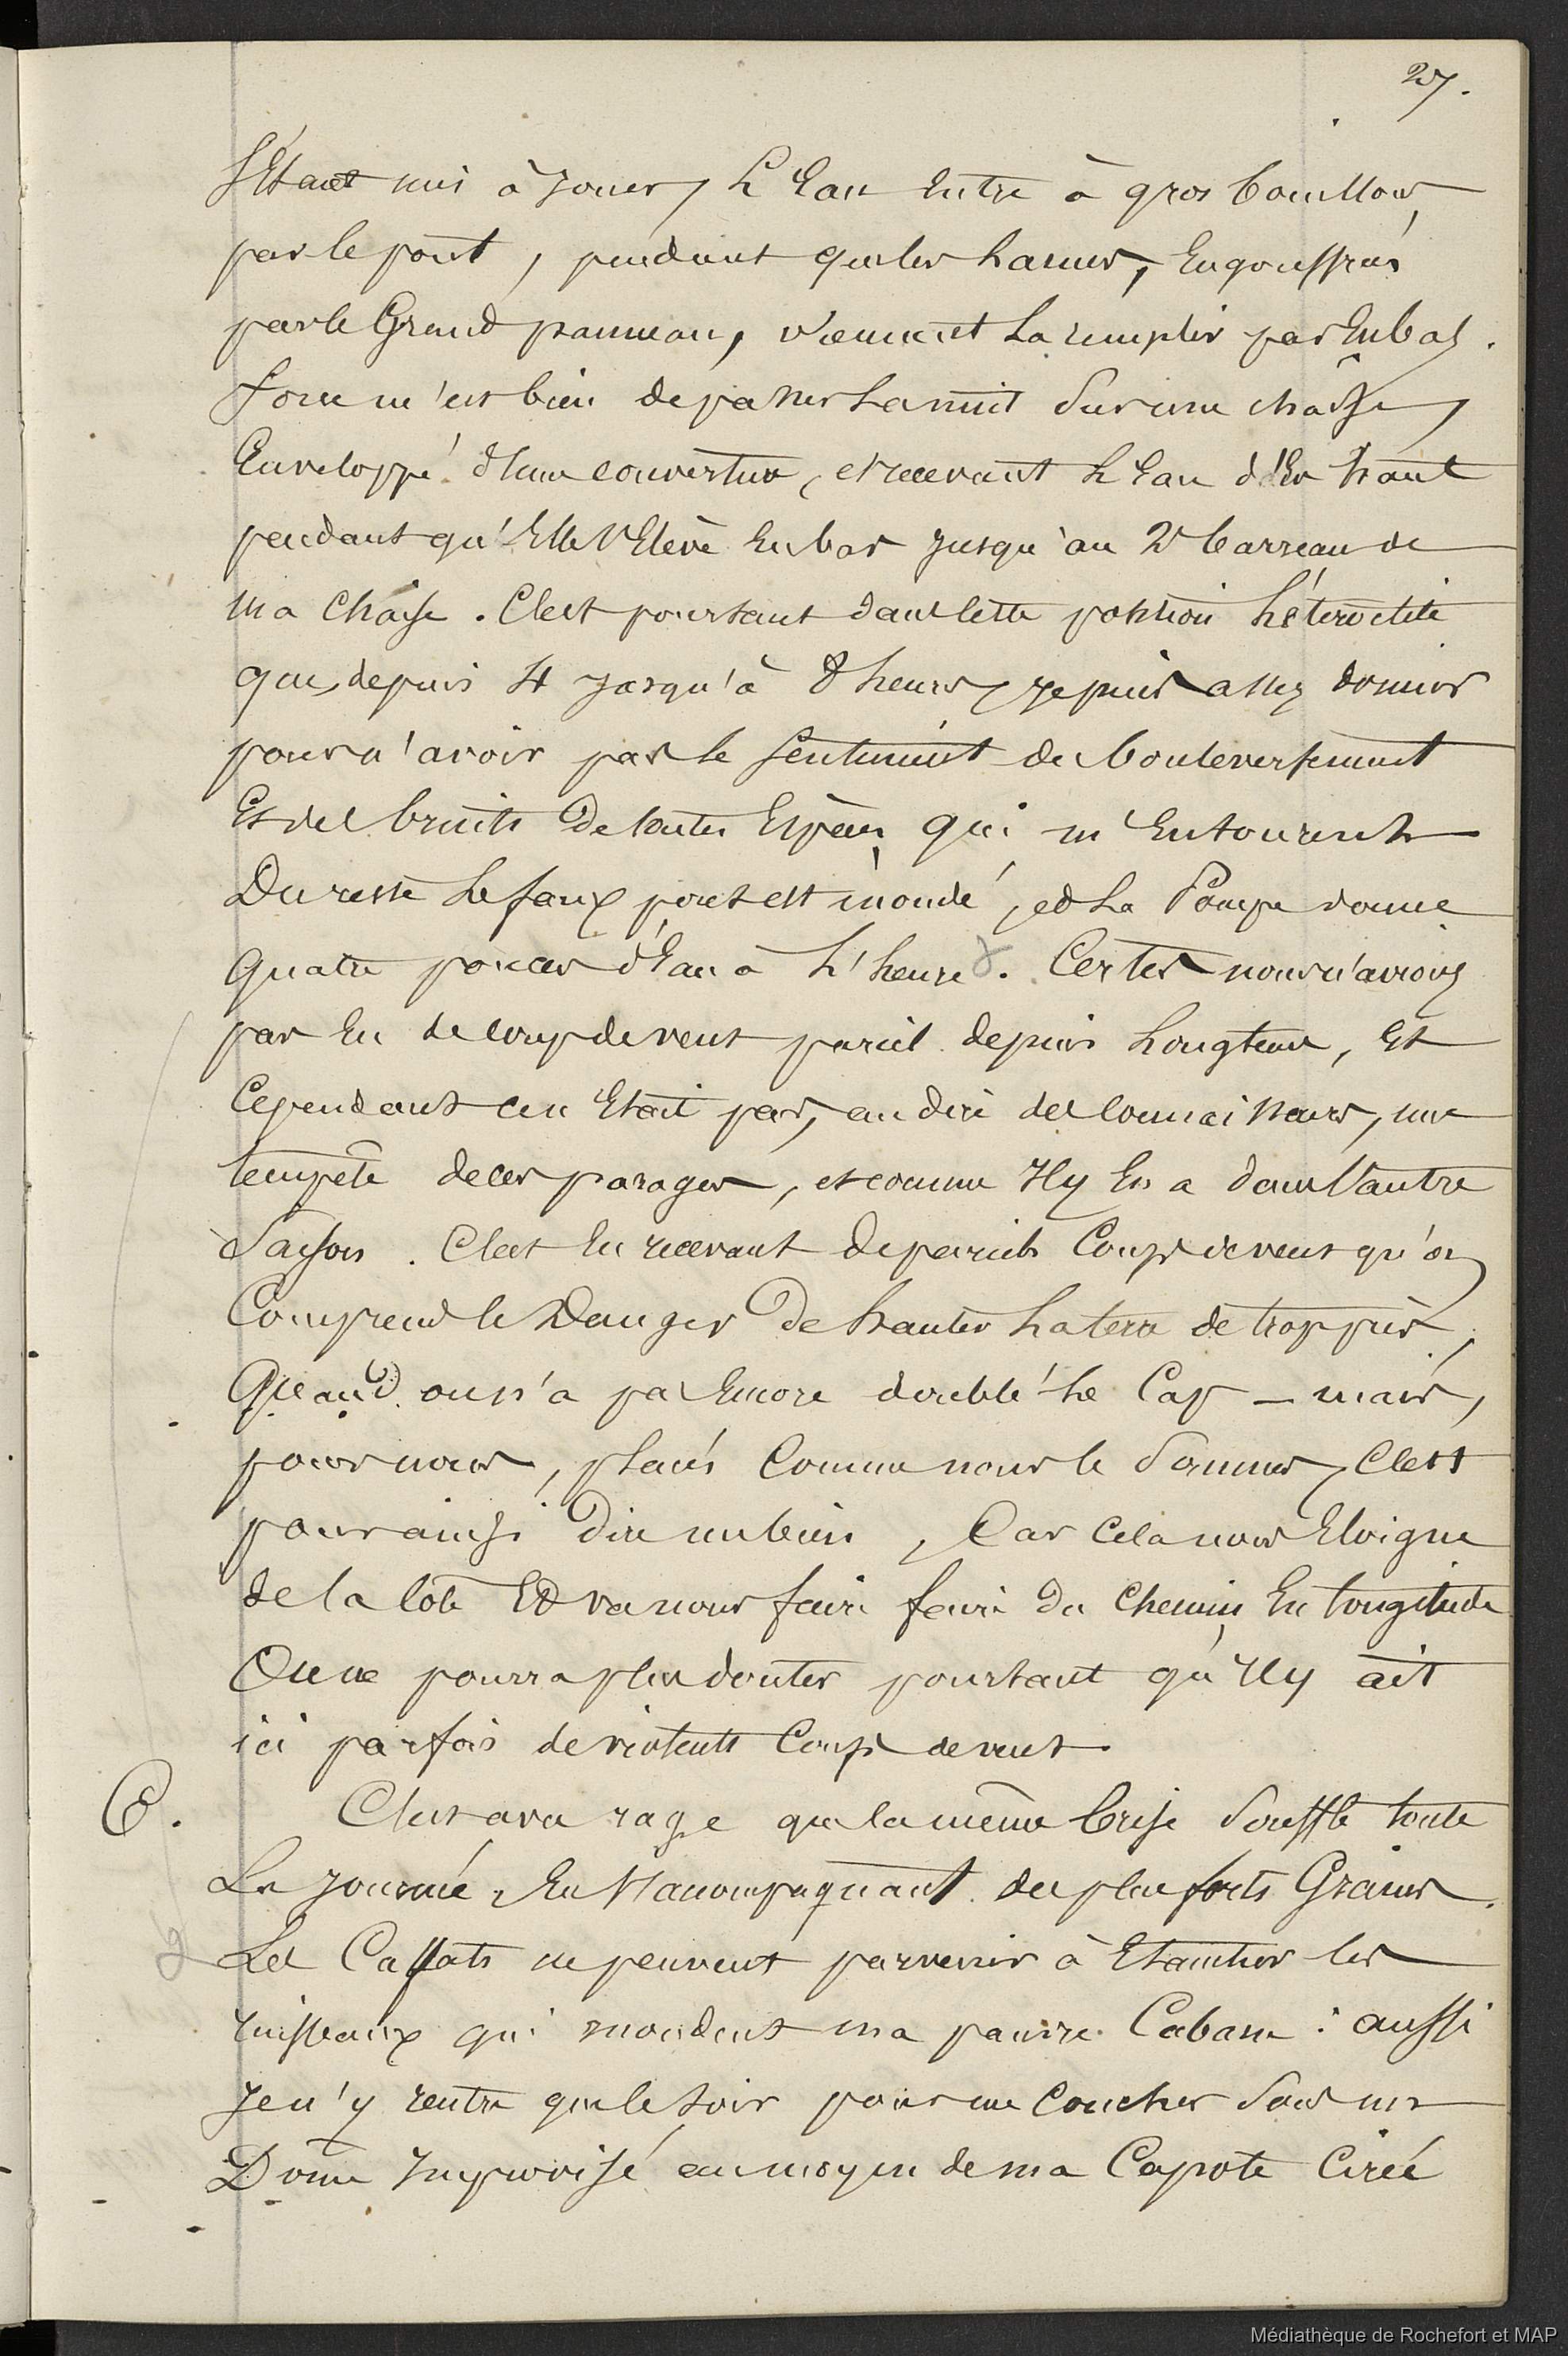 27.
S'étant mis à jouer, L'Eau Entre à gros bouillons,
par le pont, pendant que les lames, Engouffrées
par le Grand panneau, viennent La remplir par Enbas.
Force m'est bien de passer La nuit Sur une chaise,
Enveloppé d'une couverture, et recevant L'Eau d'En haut
pendant qu'Elle s'Elève En bas jusqu'au 2e barreau de
ma Chaise. C'est pourtant dans cette position hétéroclite
que, depuis 4 jusqu'à 8 heures, je puis assez dormir
pour n'avoir pas le Sentiment du bouleversement
Et des bruits De toutes Espèces, qui m'Entourent
Du reste Le faux pont est inondé, et La Pompe donne
quatre pouces d'Eau à L'heure. Certes nous n'avions
pas Eu de coup de vent pareil depuis Longtems, Et
Cependant ce n'Etait pas, au dire des connaisseurs, une
tempête de ces parages, et comme Il y En a dans l'autre
Saison. C'est En recevant de pareils Coups de vent qu'on
Comprend le Danger De hanter La terre de trop près,
Quand on n'a pas Encore doublé Le Cap — mais,
pour nous, placés Comme nous le Sommes, C'est
pour ainsi Dire un bien, Car Cela nous Eloigne
de la Côte Et va nous faire faire du Chemin En Longitude
On ne pourra plus douter pourtant qu'Il y ait
ici parfois de violents Coups de vent.
6. C'est avec rage que la même brise Souffle toute
La journée, En s'accompagnant des plus forts Grains.
Les Calfats ne peuvent parvenir à Etancher les
ruisseaux qui inondent ma pauvre Cabane : aussi
Je n'y rentre que le Soir pour me Coucher Sous un
Dôme Improvisé au moyen de ma Capote Cirée
Médiathèque de Rochefort et MAP